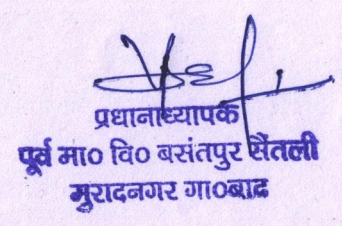 प्रधानाध्यापक
पूर्व मा० वि० बसंतपुर सैंतली
मुरादनगर गा०बाद